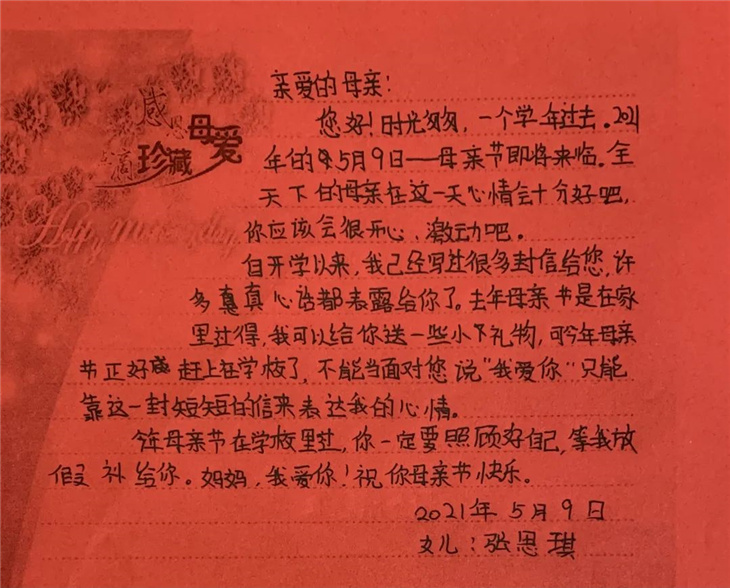 感恩母爱
珍藏
Happy Mother's day
亲爱的母亲：
您好！时光匆匆，一个学年过去。2021
年的5月9日——母亲节即将来临。全
天下的母亲在这一天心情会十分好吧，
你应该会很开心、激动吧。
自开学以来，我已经写过很多封信给您，许
多真心话都表露给你了。去年母亲节是在家
里过得，我可以给你送一些小礼物，可今年母亲
节正好赶上在学校了，不能当面对您说“我爱你”只能
靠这一封短短的信来表达我的心情。
今年母亲节在学校里过，你一定要照顾好自己，等我放
假礼给你。妈妈，我爱你！祝你母亲节快乐。
2021年5月9日
女儿：张思琪